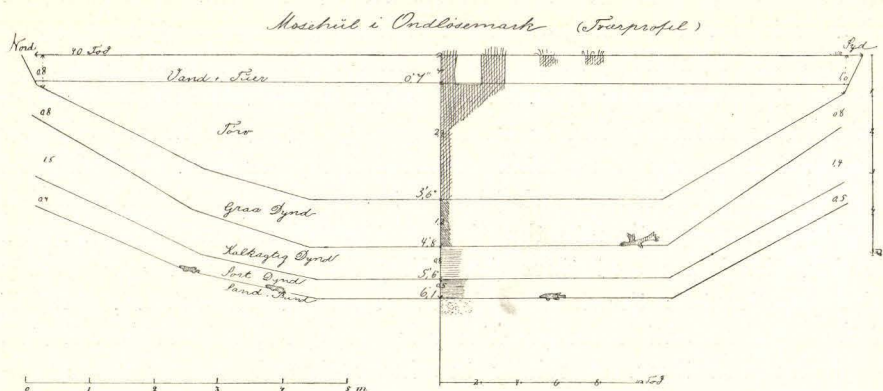 Mosehul i Ondlösemark (Tværprofil)
Nord
Syd
40 Fod
0.8
Vand + Tuer
0.7"
1.0
0.8
0.8
Törv
2
1.5
1.4
3.6"
0.4
Graa Dynd
1.2
0.5
4.8
Kalkagtig Dynd
0.8
5.6
Sort Dynd
0.5
Sand-Bund
6.1
0 1 2 3 4 5 M.
2 4 6 8 10 Fod